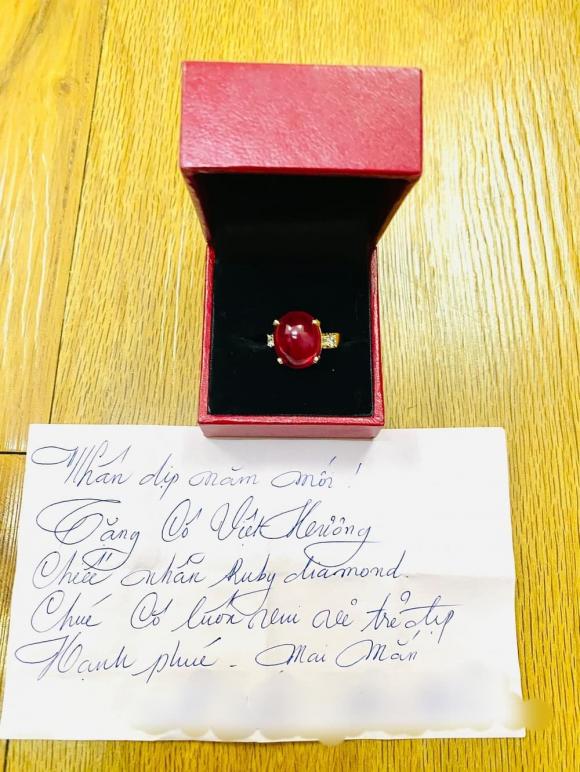 Nhân dịp năm mới !
Tặng Cô Việt Hương
Chiếc nhẫn Ruby diamond.
Chúc Cô luôn vui vẻ trẻ đẹp
Hạnh phúc - Mai Mắn